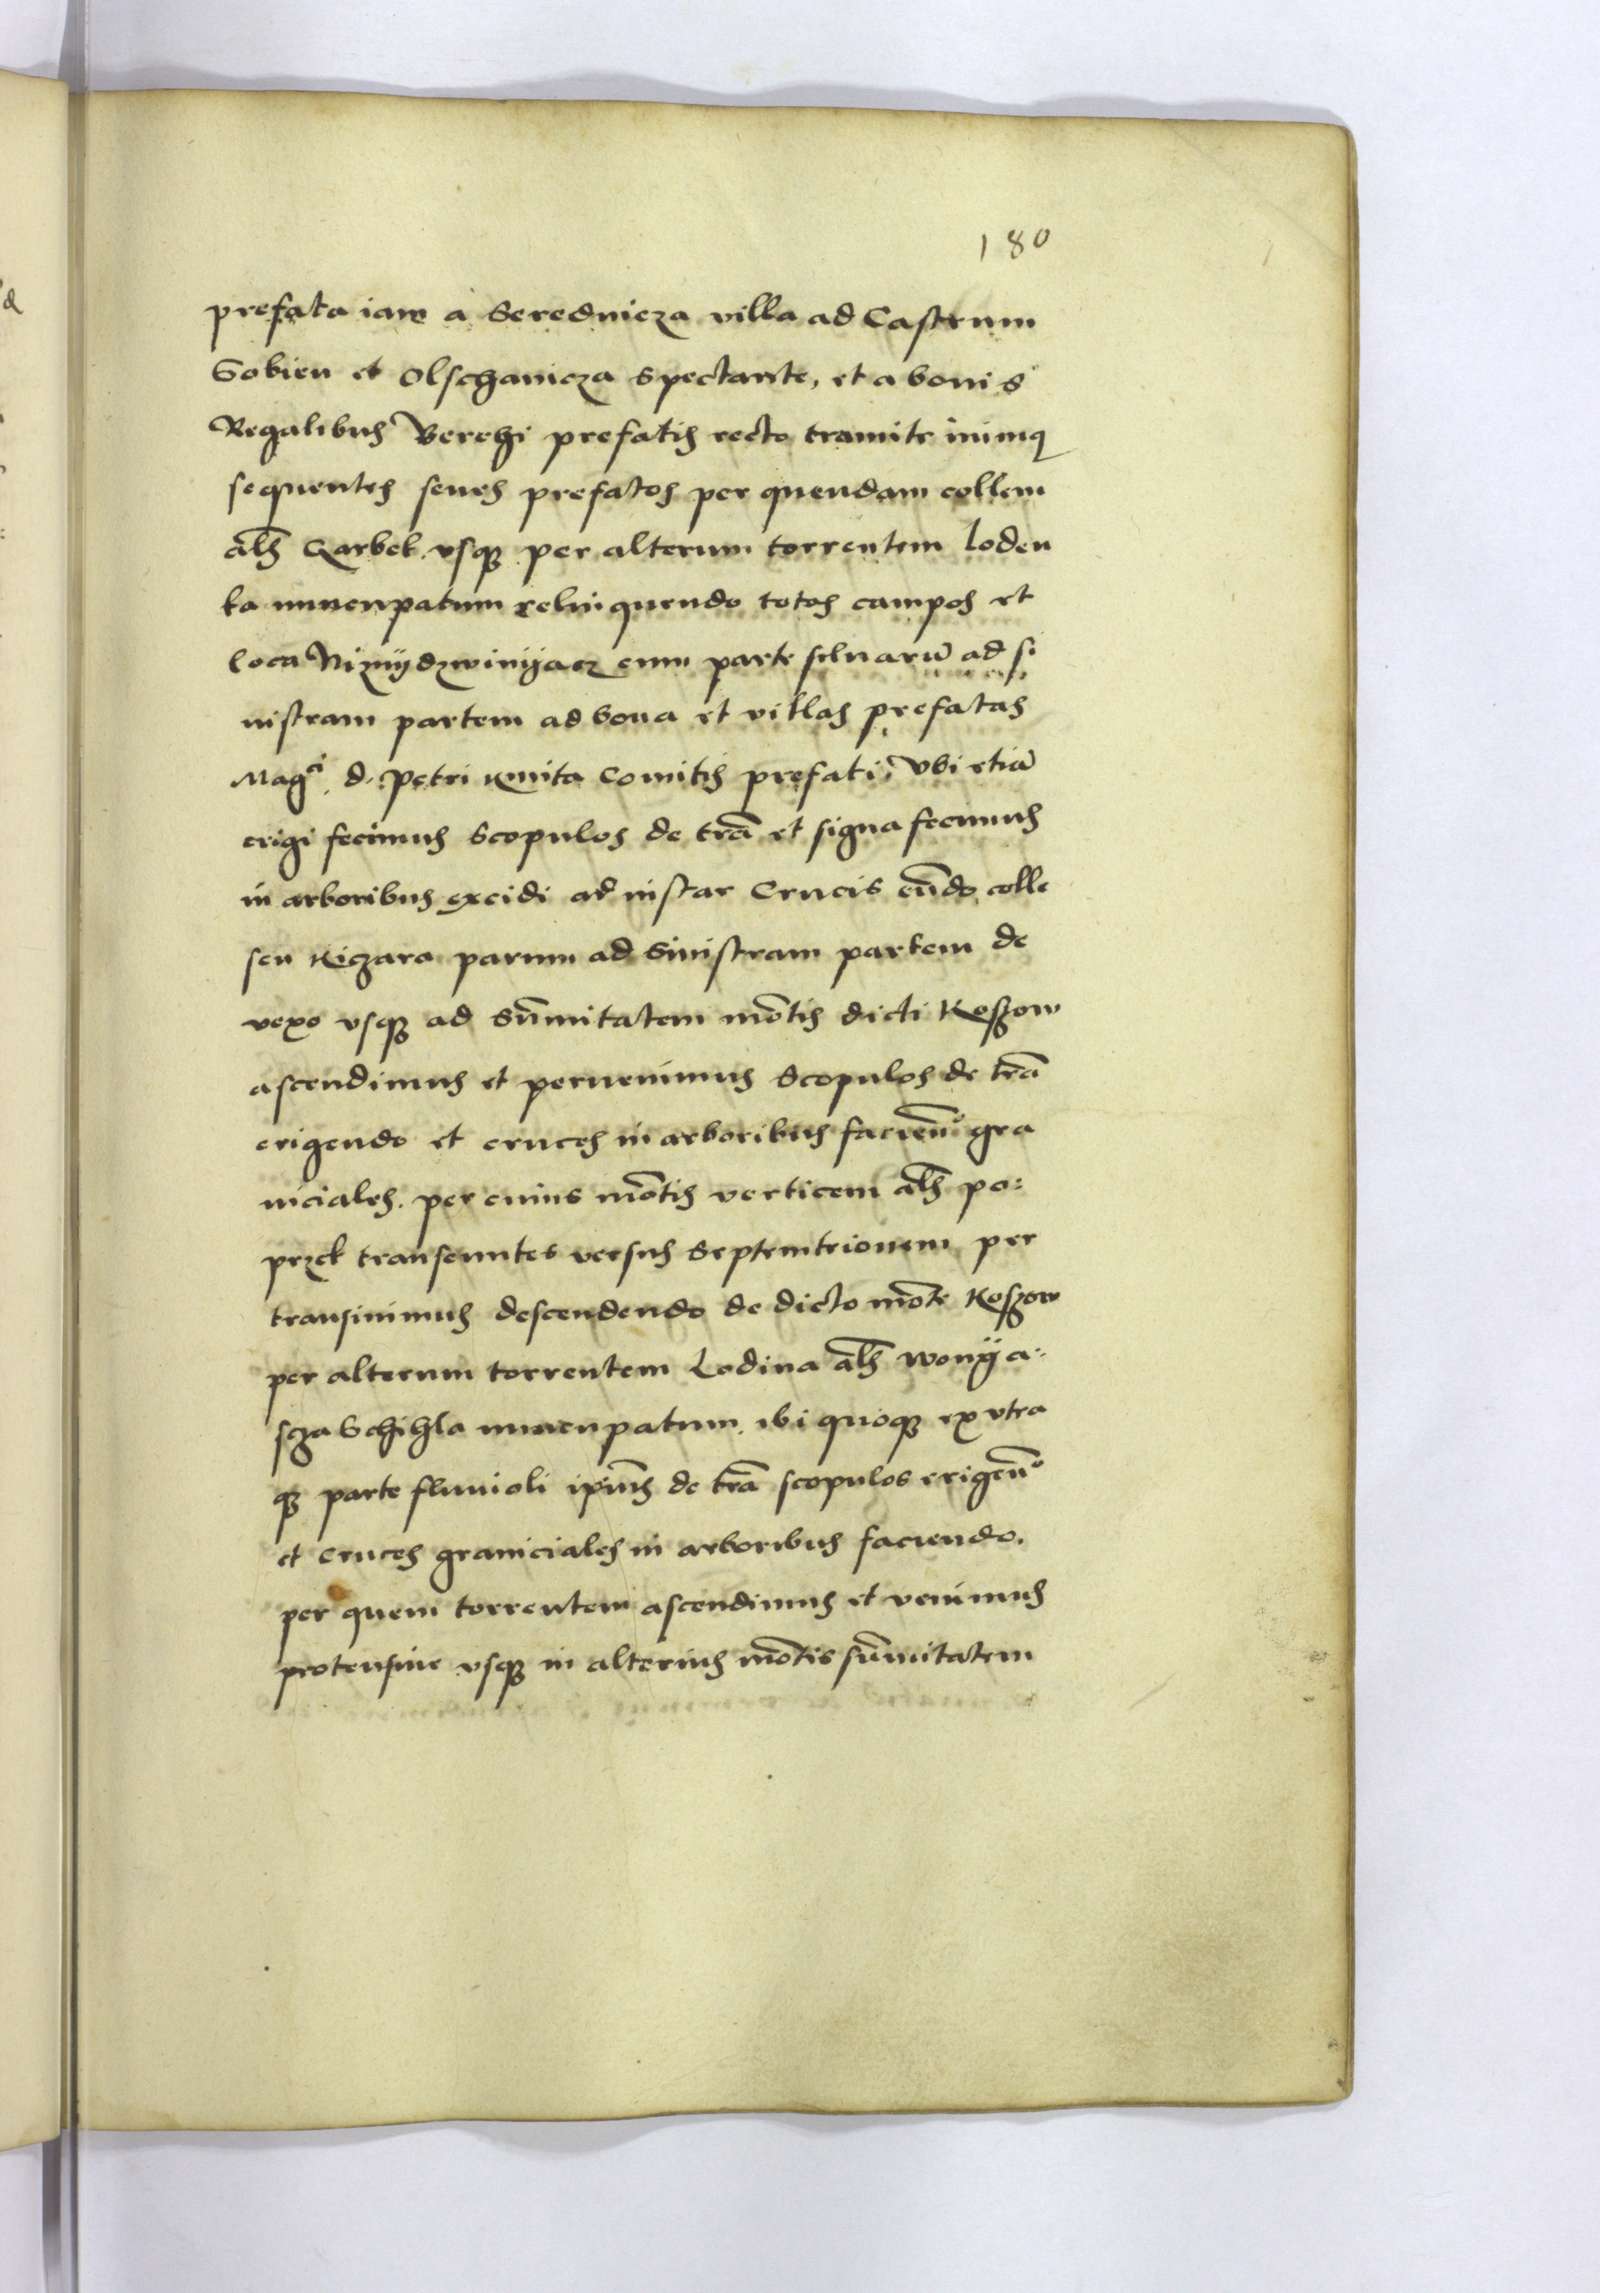 180
prefata iam a Serednicza villa ad Castrum
Sobien et Olschanicza spectante, et a bonis
Regalibus Berehi prefatis recto tramite
sequentes prefatos per quendam collem
al̄s Garbek vsq̨ per alterum torrentem loden
ka nuncupatum relinquendo totos campos et
loca cum parte siluarū ad si
nistram partem ad bona et villas prefatas
Mag^ci d. Petri Kmita Comitis prefati, Vbi etiā
erigi fecimus Scopulos de trā et signa fecimus
in arboribus excidi ad instar Crucis eūdo colle
seu Kiczara parum ad Sinistram partem de
vexo vsq̨ ad Sūmitatem mōtis dicti Roszow
ascendimus et peruenimus Scopulos de trā
erigendo et cruces in arboribus faciēn° gra
niciales. per cuius mōtis verticem al̄s po:
przek transeuntes versus Septemtrionem per
transiuimus descendendo de dicto mōte Roszow
per alterum torrentem Lodina al̄s wonÿa:
scza Schihla nuncupatum. ibi quoq̨ ex vtra
q̨ parte fluuioli ipiūs de trā scopulos erigēn°
et cruces graniciales in arboribus faciendo.
per quem torrentem ascendimus et venimus
protensiue vsq̨ in alterius mōtis sūmitatem